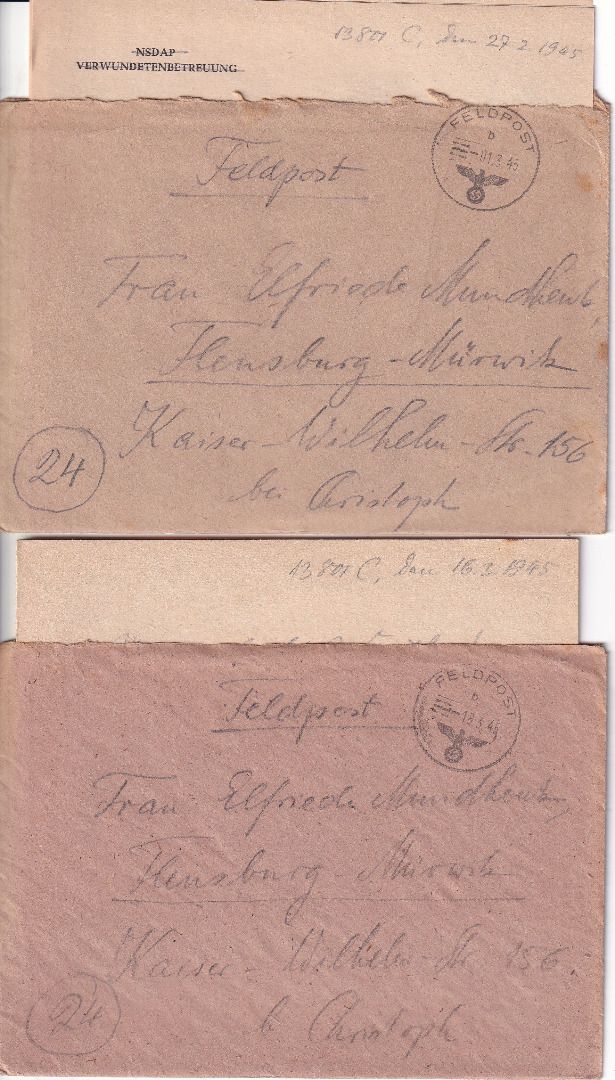 13801 C, den 27 2 1945
NSDAP
VERWUNDETENBETREUUNG
FELDPOST
b
-01.3.45
Feldpost
Frau Elfriede Mundhenk,
Flensburg-Mürwik
Kaiser-Wilhelm-Str. 156
24
bei Christoph
13801 C, den 16.3 1945
FELDPOST
b
-18.3.45
Feldpost
Frau Elfriede Mundhenk,
Flensburg-Mürwik
Kaiser-Wilhelm-Str 156.
24
b Christoph